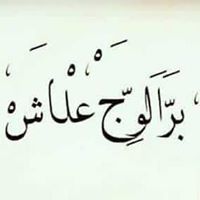 بَرَّالَوِجّْ عْلْاشَ